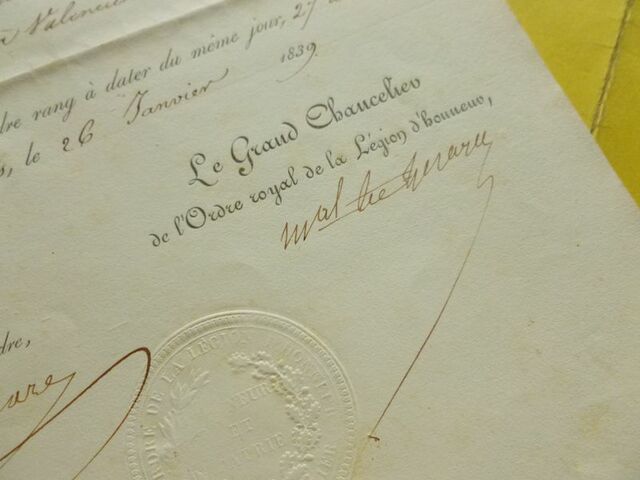 Valencien
dre rang à dater du même jour, 27
s, le 26 Janvier 1839
Le Grand Chancelier
de l'Ordre royal de la Légion d'honneur,
Mal
dre,
ORDRE DE LA LÉGION
ET